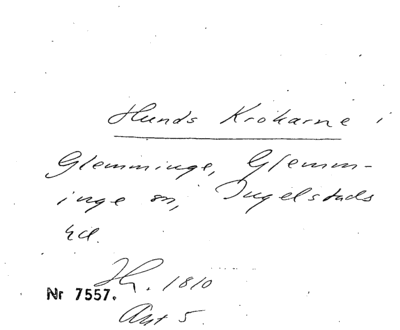 Hunds Krokarne i
Glemminge, Glemm-
inge sn, Ingelstads
hd.
Hr. 1810
Nr 7557.
Ant 5.